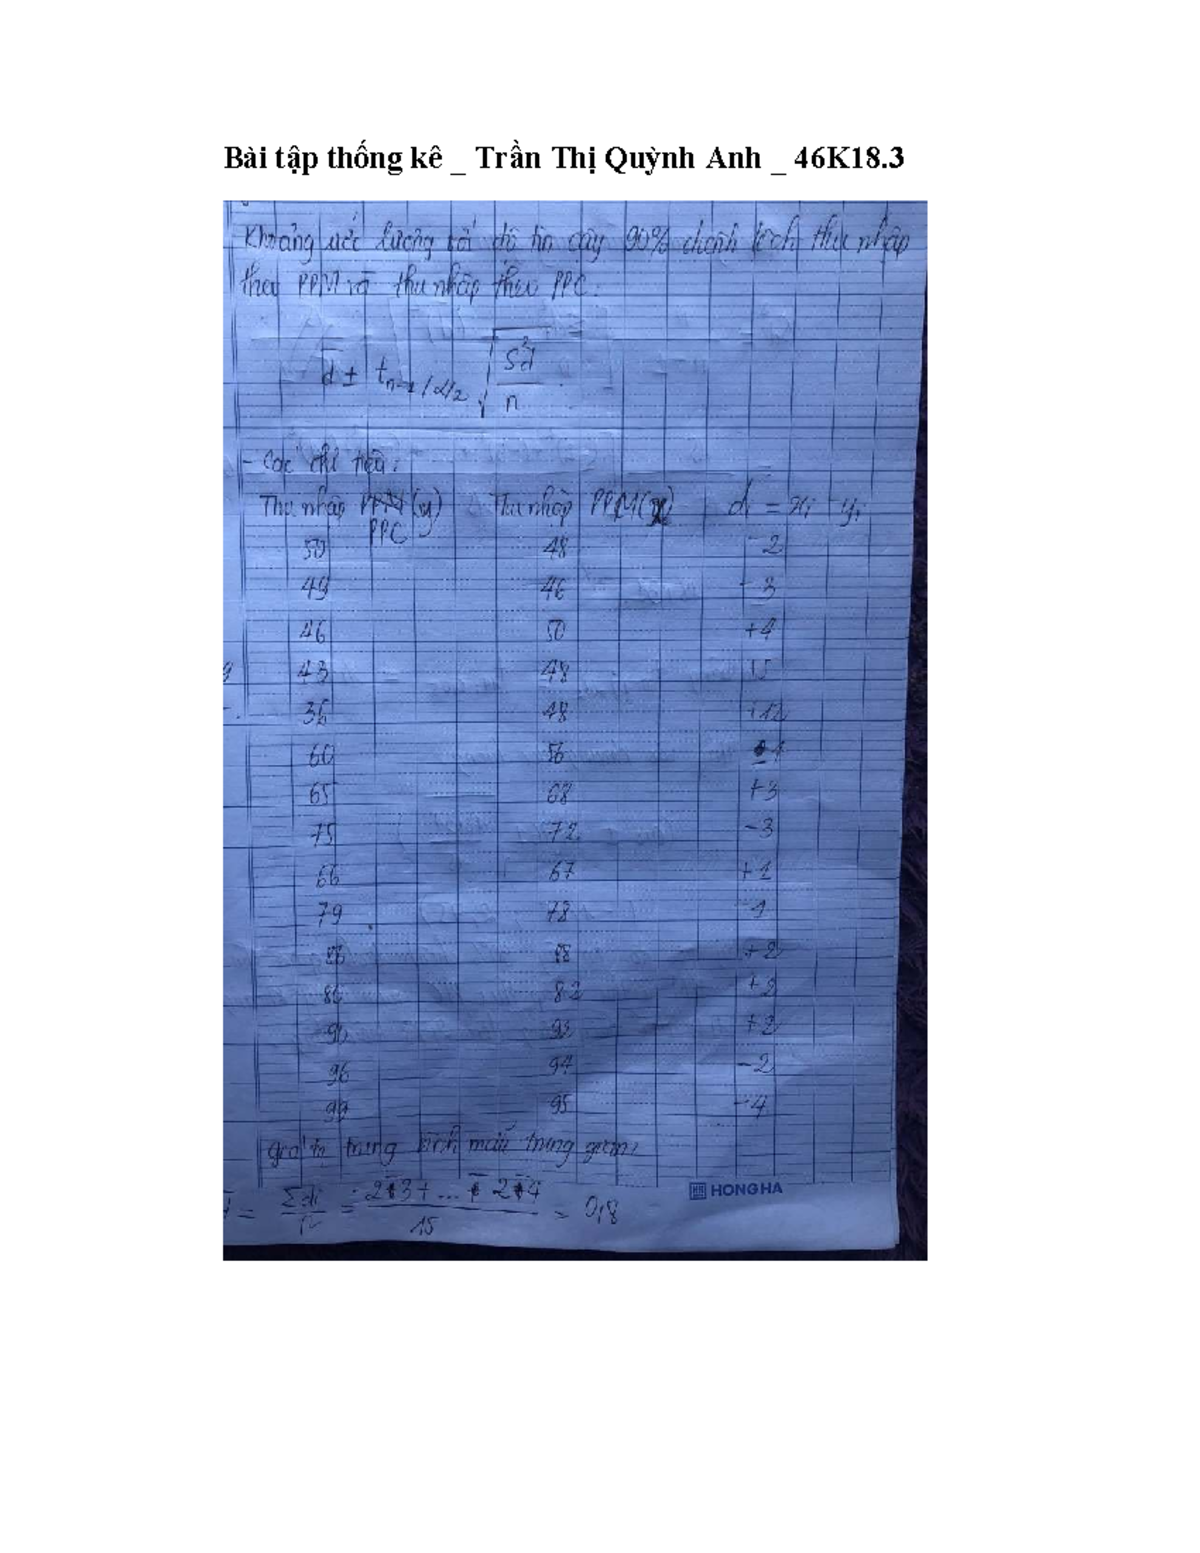 Bài tập thống kê _ Trần Thị Quỳnh Anh _ 46K18.3
Khoảng ước lượng với độ tin cậy 90% chênh lệch thu nhập
theo PPM và thu nhập theo PPC:
d̄ ± t n-1, α/2 √ S²d / n
- Các chỉ tiêu:
Thu nhập PPC (y) Thu nhập PPM (x) di = xi - yi
50 48 -2
49 46 -3
46 50 +4
43 48 +5
36 48 +12
60 56
65 68 +3
75 72 -3
66 67 +1
79 78 -1
88 +2
82 +2
90 93 +2
96 94 -2
99 95 -4
giá trị trung bình mẫu trung gian:
= Σdi / n = / 15 = 0,8
HONG HA